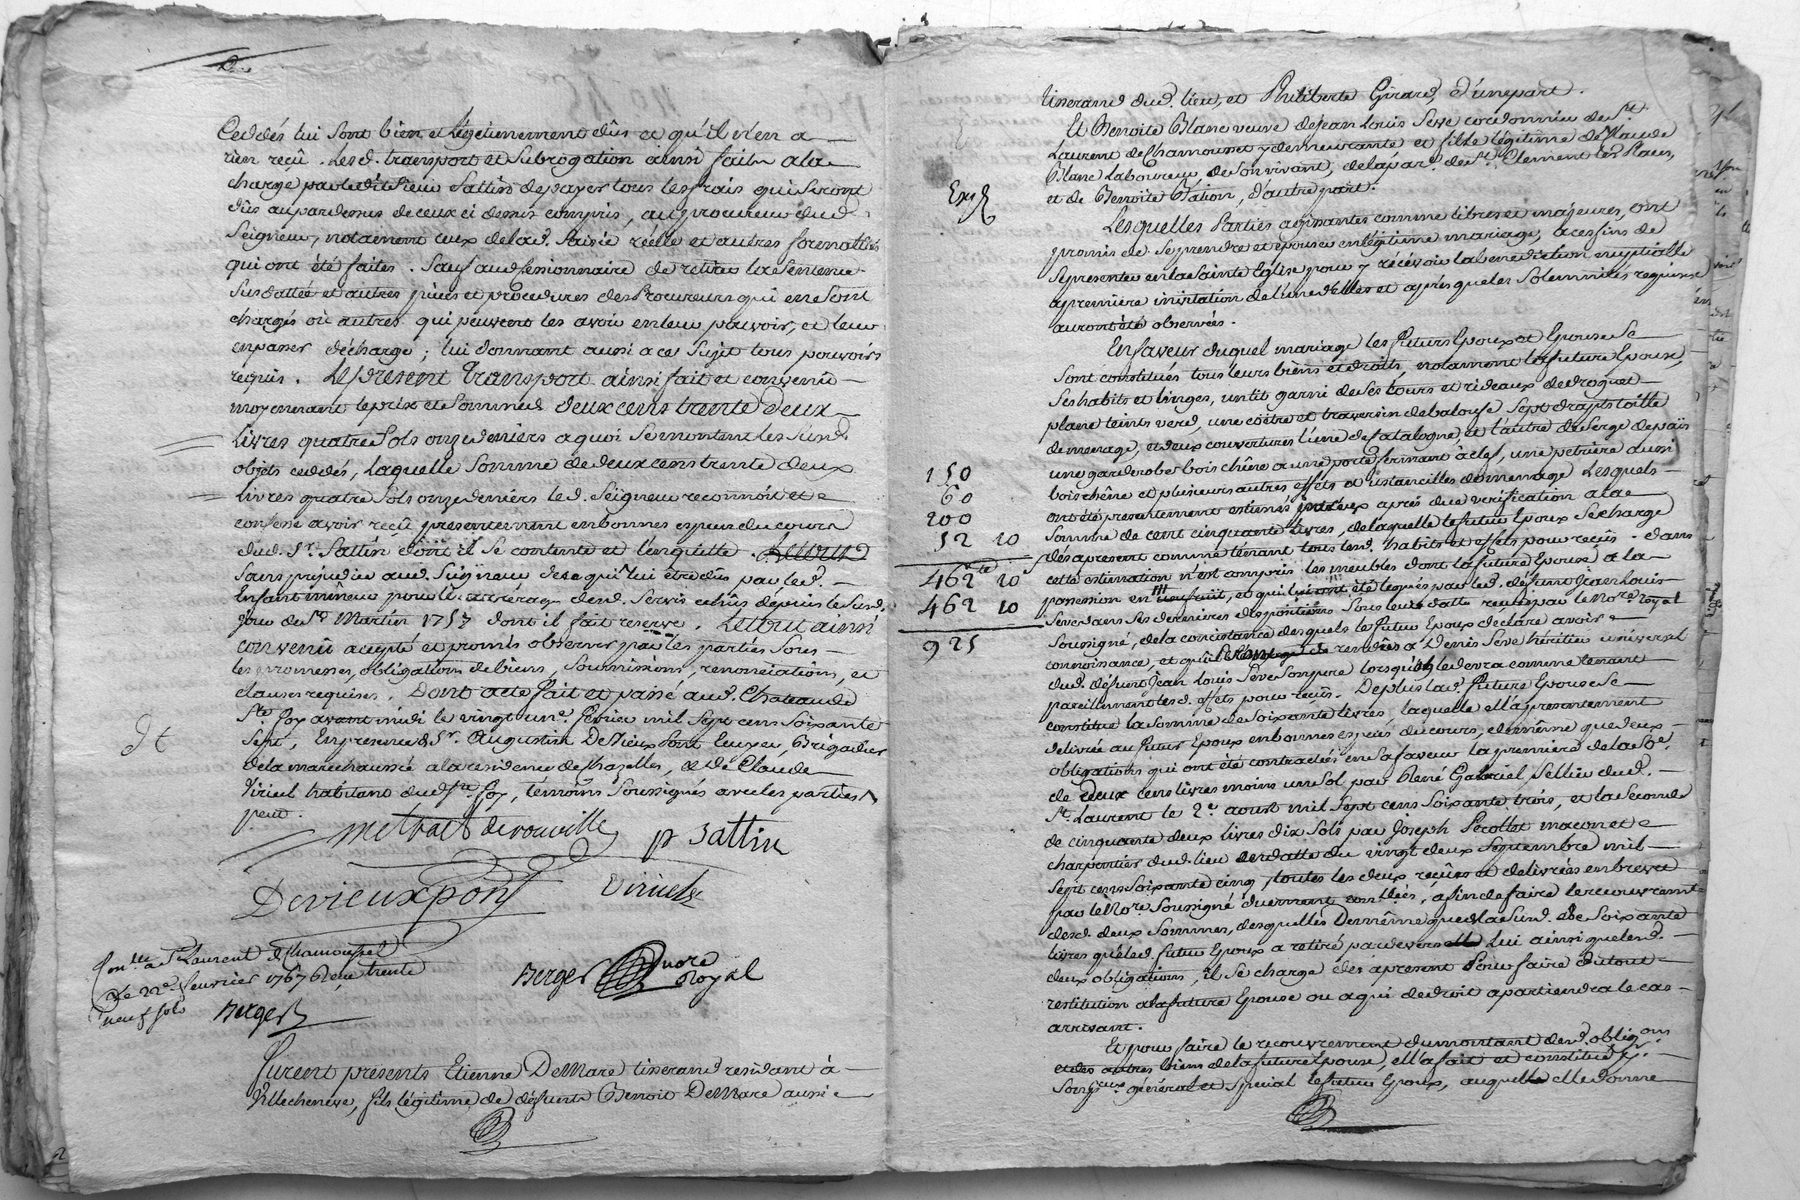 Ceddés lui sont bien et légitimement dûs et qu'il n'en a
rien reçû. Lesd. transport et subrogation ainsi faits a la
charge par ledit sieur Sattin de payer tous les frais qui seront
dûs au pardessus de ceux ci dessus compris, au procureur dud.
Seigneur, notament ceux de lad. Saisie réelle et autres formalités
qui ont été faites. Sauf aud. cessionnaire de retirer la sentence
susdattée et autres pièces et procedures des Procureurs qui en sont
chargés où autres qui peuvent les avoir en leur pouvoir, et leur
en passer décharge; lui donnant aussi a ce sujet tous pouvoirs
requis. Le present Transport ainsi fait et convenu
moyennant le prix et somme de deux cens trente deux
Livres quatre sols onze deniers a quoi se montent les susd.
objets ceddés, Laquelle somme de deux cens trente deux
Livres quatre sols onze deniers led. Seigneur reconnoit et
confesse avoir reçû presentement en bonnes especes du cours
dud. Sr. Sattin dont il se contente et l'en quitte. Le tout
Sans préjudice aud. Seigneur de ce qui lui être dûs par led.
Enfant mineur pour les arrérages desd. Servis échûs depuis le susd.
jour de St. Martin 1757 dont il fait reserve. Le tout ainsi
convenu accepté et promis observer par les parties sous
les promesses, obligation de biens, soumissions, renonciations, et
clauses requises. Dont acte Fait et passé aud. Chateau de
Ste. foy avant midi le vingt un. fevrier mil sept cens soixante
sept, En presence de Sr. Augustin De Vieux pont Ecuyer, Brigadier
de la marechaussée a la residence de Chazelles, et de Claude
Viricel habitant dud. Ste. foy, témoins soussignés avec les parties
dt
metrat de rouville
p sattin
Devieuxpont
Viricel
Berger nore Royal
Con.lle a St Laurent de Chamousset
Le 22e. feuvrier 1767
neuf sols
Berger
Furent presents Etienne DeMare tisserand residant à
Villecheneve, fils légitime de défunts Benoit DeMare aussi
tisserand dud. lieu, et Philiberte Girard, d'une part.
Et Benoite Blanc veuve de Jean Louis Seve cordonnier de St.
Laurent de Chamousset y demeurante et fille légitime de Claude
Blanc Laboureur, de son vivant, de la par. de St. Clement les Places,
et de Benoite Bation, d'autre part.
Exp.
Lesquelles Parties agissantes comme libres et majeures, ont
promis de se prendre et épouser en légitime mariage, a ces fins de
se presenter en la Sainte Eglise pour y récévoir la benediction nuptialle
a premiere invitation de l'une d'elles et après que les solemnités requises
auront été observées.
En faveur duquel mariage les Futurs Epoux et Epouse se
sont constitués tous leurs biens et droits, notamment la future Epouse,
ses habits et linges, un lit garni de ses tours et rideaux de droguet
plane teints verd, une coëtre et traversin de balouse sept draps toille
de menage, et deux couvertures l'une de Catalogne, et l'autre de Serge de païs
une garderobe bois chêne a une porte fermant à clef, une petriere aussi
bois chêne et plusieurs autres effets et ustancilles de menage Lesquels
ont été presentement estimés entr'eux après due verification a la
somme de cent cinquante livres, de laquelle le futur Epoux se charge
dès apresent comme tenant tous lesd. habits et effets pour reçûs. dans
cette estimation n'est compris les meubles dont la future Epouse a la
150
60
200
52 10
462 10
462 10
925
possession en usufruit, et qui lui ont été légués par led. défunt Jean Louis
Seve dans ses dernieres dispositions sous leur datte reçues par le Nore. royal
soussigné, de la consistance desquels le futur Epoux declare avoir
connoissance, et qu'il rendre à Denis Seve héritier universel
dud. défunt Jean Louis Seve son pere lorsqu'il le devra comme tenant
pareillement lesd. effets pour reçûs. De plus lad. future Epouse se
constitue la somme de soixante livres laquelle ell'a presentement
delivrée au futur Epoux en bonnes especes du cours, de même que deux
obligations qui ont été contractées en sa faveur la premiere de la So.e
de deux cens livres moins un sol par René Gabriel Sellier dud.
St. Laurent le 2e. aoust mil sept cens soixante trois, et la seconde
de cinquante deux livres dix sols par Joseph Pecollet macon et
charpentier dud. lieu en datte du vingt deux septembre mil
sept cens soixante cinq, toutes les deux reçües et delivrées en brevet
par le Nore. soussigné duement contllées, afin de faire le recouvrement
desd. deux sommes, desquelles De même que de la susd. de soixante
livres que led. futur Epoux a retiré par devers lui ainsi que lesd.
deux obligations, il se charge dès apresent d'en faire du tout
restitution a la future Epouse ou a qui de droit apartiendra le cas
arrivant.
Et pour faire le recouvrement du montant desd. obligons
et des autres biens de la future Epouse, ell'a fait et constitué
son général et spécial le futur Epoux, auquel elle donne